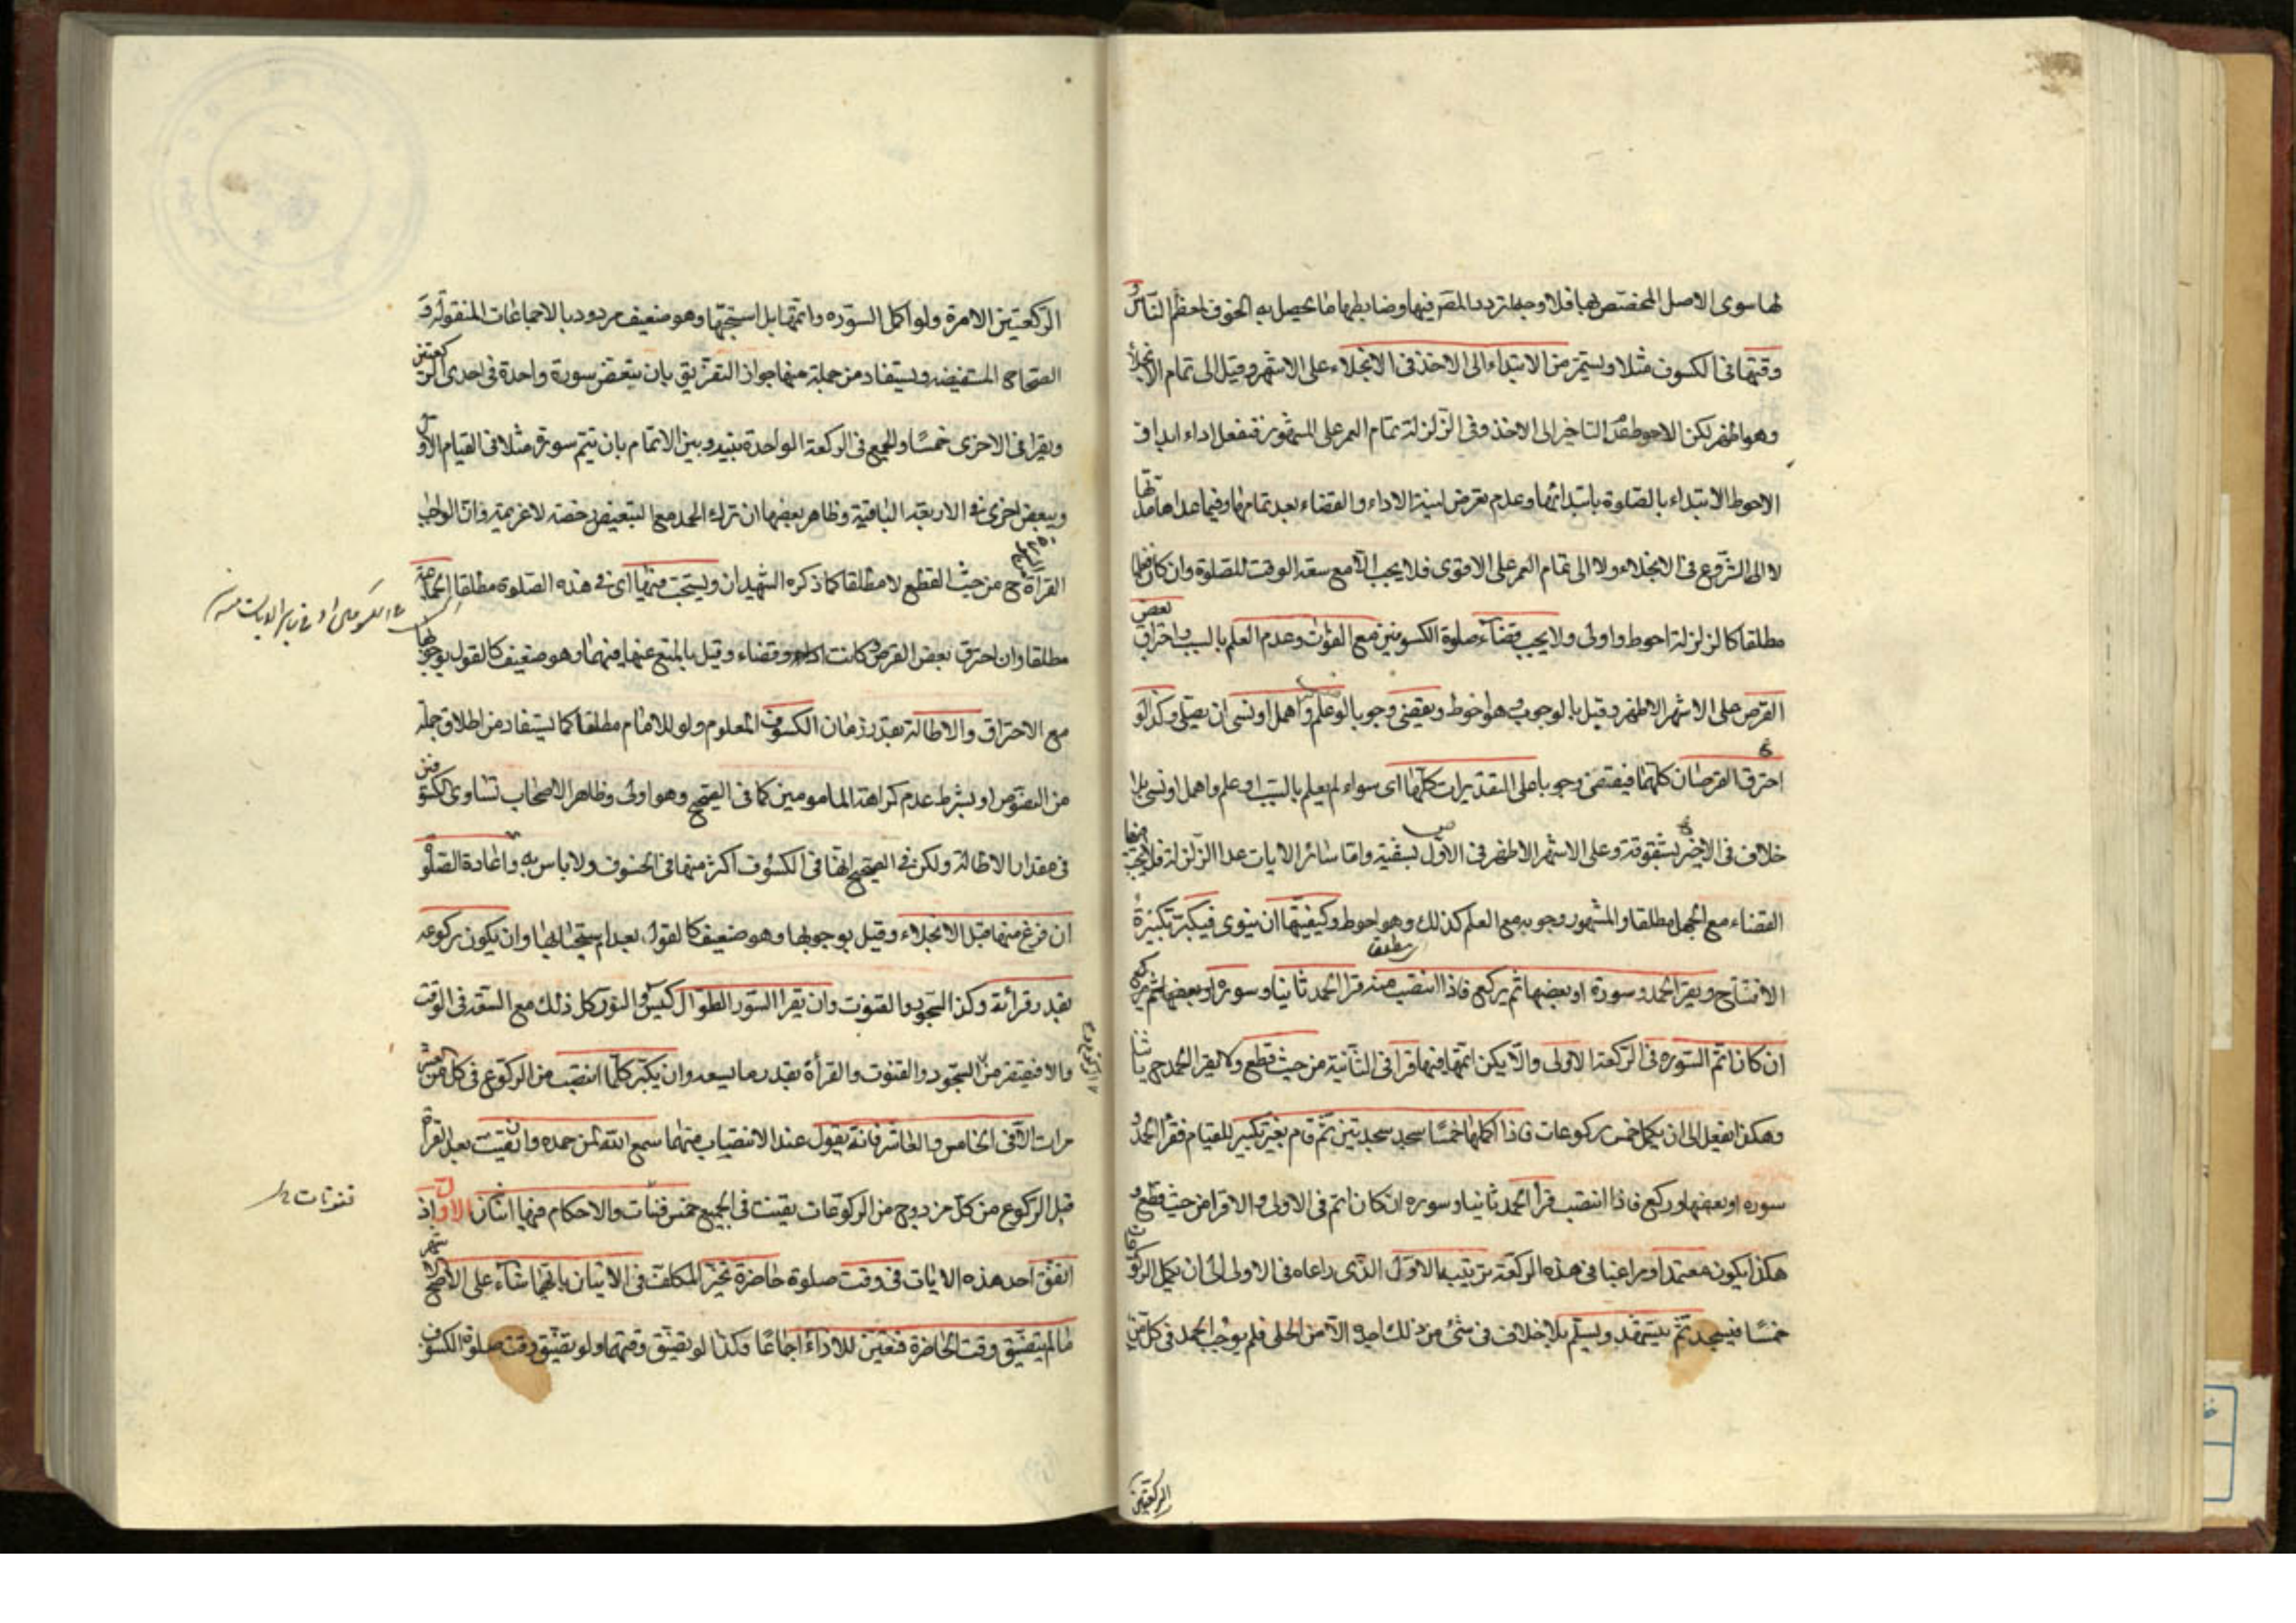 لها سوى الاصل المخصص بها فلا وجه لتردد المصر فيها وضابطها ما يحصل به الخوف لمعظم الناس و
وقتها فى الكسوف مثلا ويستمر من الابتداء الى الاخذ فى الانجلاء على الاشهر وقيل الى تمام الانجلاء
وهو اظهر لكن الاحوط عدم التاخير الى الاخذ وفى الزلزلة تمام العمر على المشهور فتفعل اداء ابدا و
الاحوط الابتداء بالصلوة بابتدائها وعدم تعرض لنية الاداء والقضاء بعد تمامها وفيما عداها مدتها
لا الى الشروع فى الانجلاء ولا الى تمام العمر على الاقوى فلا يجب الا مع سعة الوقت للصلوة وان كان فعلها
مطلقا كالزلزلة احوط واولى ولا يجب قضاء صلوة الكسوفين مع الفوات وعدم العلم بالسبب واحتراق بعض
القرص على الاشهر الاظهر وقيل بالوجوب وهو احوط ويقضى وجوبا لو علم واهمل او نسى ان يصلى وكذا لو
احترق القرصان كلهما فيقضى وجوبا على التقديرات كلها اى سواء لم يعلم بالسبب او علم واهمل او نسى بلا
خلاف فى الاخير بشقوقه وعلى الاشهر الاظهر فى الاول بشقيه واما سائر الايات عدا الزلزلة فلا يجب فيها
القضاء مع الجهل مطلقا والمشهور وجوبه مع العلم كذلك وهو احوط وكيفيتها ان ينوى فيكبر تكبيرة
الافتتاح ويقرا الحمد وسورة او بعضها ثم يركع فاذا انتصب منه قرا الحمد ثانيا وسورة او بعضها ثم ركع
ان كان اتم السورة فى الركعة الاولى والا يكن اتمها فيها قرا فى الثانية من حيث قطع ولا يقرا الحمد ح ثانيا
وهكذا يفعل الى ان يكمل خمس ركوعات فاذا اكملها خمسا سجد سجدتين ثم قام بغير تكبير للقيام فقرا الحمد و
سورة او بعضها وركع فاذا انتصب قرأ الحمد ثانيا وسورة ان كان اتم فى الاولى والا قرا من حيث قطع و
هكذا يكون معتمدا ومراعيا فى هذه الركعة ترتيبه الاول الذى راعاه فى الاولى الى ان يكمل الركوعات
خمسا فيسجد ثم يتشهد ويسلم بلا خلاف فى شئ من ذلك اجده الا من الحلى فلم يوجب الحمد فى كل من
الركعتين
الركعتين الا مرة ولو اكمل السورة واتمها بل استحبها وهو ضعيف مردود بالاجماعات المنقولة و
الصحاح المستفيضة ويستفاد من جملة منها جواز التفريق بان يبعض سورة واحدة فى احدى الركعتين
ويقرا فى الاخرى خمسا والجمع فى الركعة الواحدة بينه وبين الاتمام بان يتم سورة مثلا فى القيام الاول
ويبعض اخرى فى الاربعة الباقية وظاهر بعضها ان ترك الحمد مع التبعيض رخصة لا عزيمة وان الواجب
القراة ح من حيث القطع لا مطلقا كما ذكره الشهيدان ويستحب فيها اى فى هذه الصلوة مطلقا الجماعة
مطلقا وان احترق بعض القرص وكانت اداء وقضاء وقيل بالمنع عنها فيهما وهو ضعيف كالقول بوجوبها
مع الاحتراق والاطالة بقدر زمان الكسوف المعلوم ولو للامام مطلقا كما يستفاد من اطلاق جملة
من النصوص او بشرط عدم كراهة المامومين كما فى الصحيح وهو اولى وظاهر الاصحاب تساوى الكسوفين
فى مقدار الاطالة ولكن فى الصحيح انها فى الكسوف اكثر منها فى الخسوف ولا باس به واعادة الصلوة
ان فرغ منها قبل الانجلاء وقيل بوجوبها وهو ضعيف كالقول بعدم استحبابها وان يكون ركوعه
بقدر قرائته وكذا السجود والقنوت وان يقرا السور الطوال كيس والنور كل ذلك مع السعة فى الوقت
والا فيقتصر من السجود والقنوت والقرأة بقدر ما يسعه وان يكبر كلما انتصب من الركوع فى كل من العشر
مرات الا فى الخامس والعاشر فانه يقول عند الانتصاب منهما سمع الله لمن حمده وان يقنت بعد القراة
قبل الركوع من كل مزدوج من الركوعات يقنت فى الجميع خمس قنتات والاحكام فيها اثنان الاول اذ
اتفق احد هذه الايات فى وقت صلوة حاضرة تخير المكلف فى الاتيان بايهما شاء على الاصح الاشهر
ما لم يتضيق وقت الحاضرة فتعين للاداء اجماعا وكذا لو تضيق وقتهما ولو تضيق وقت صلوة الكسوف
قنوتات